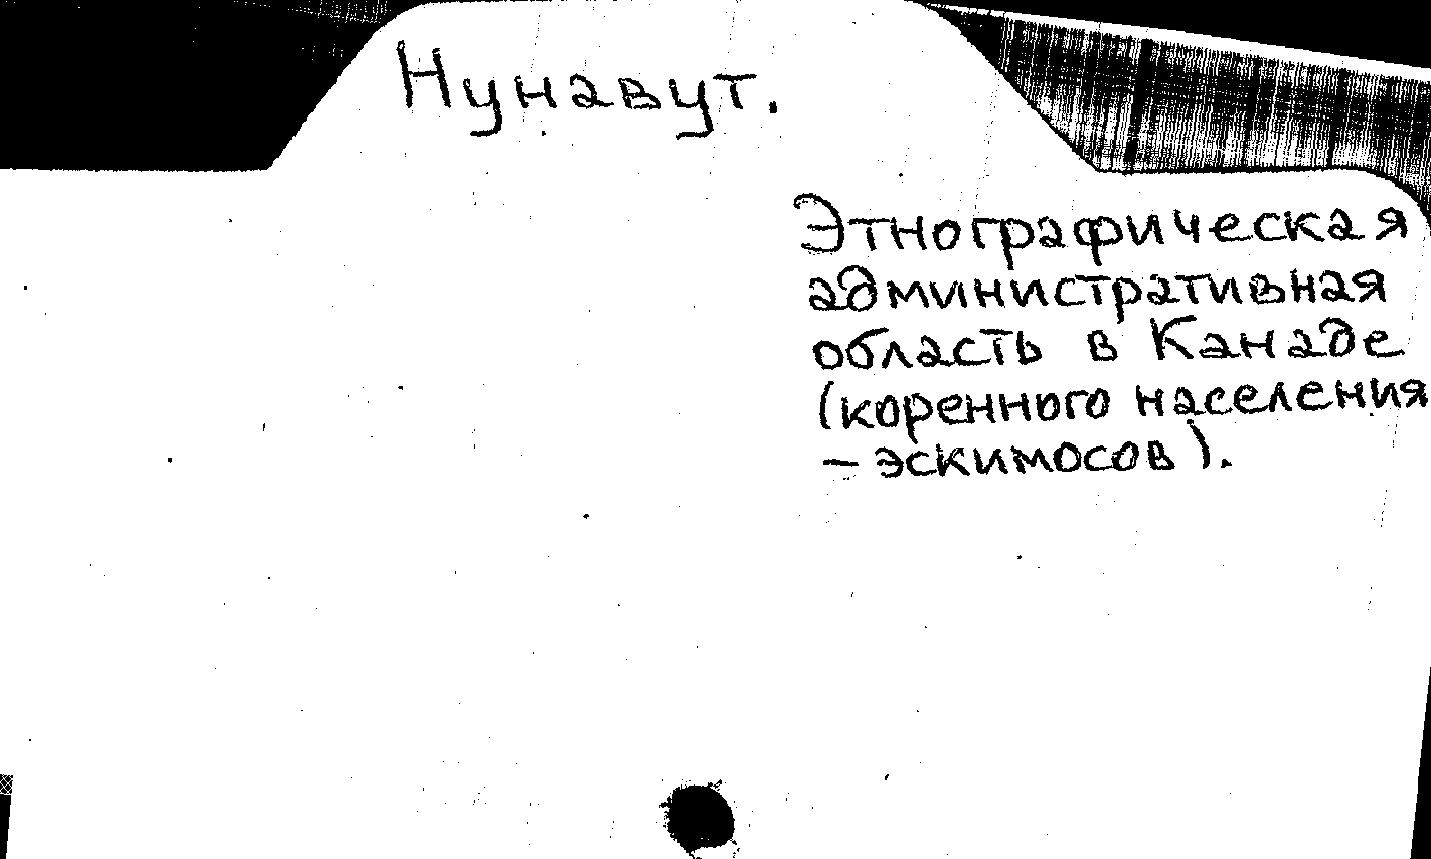 Нунавут.
Этнографическая
административная
область в Канаде
(коренного населения
– эскимосов).